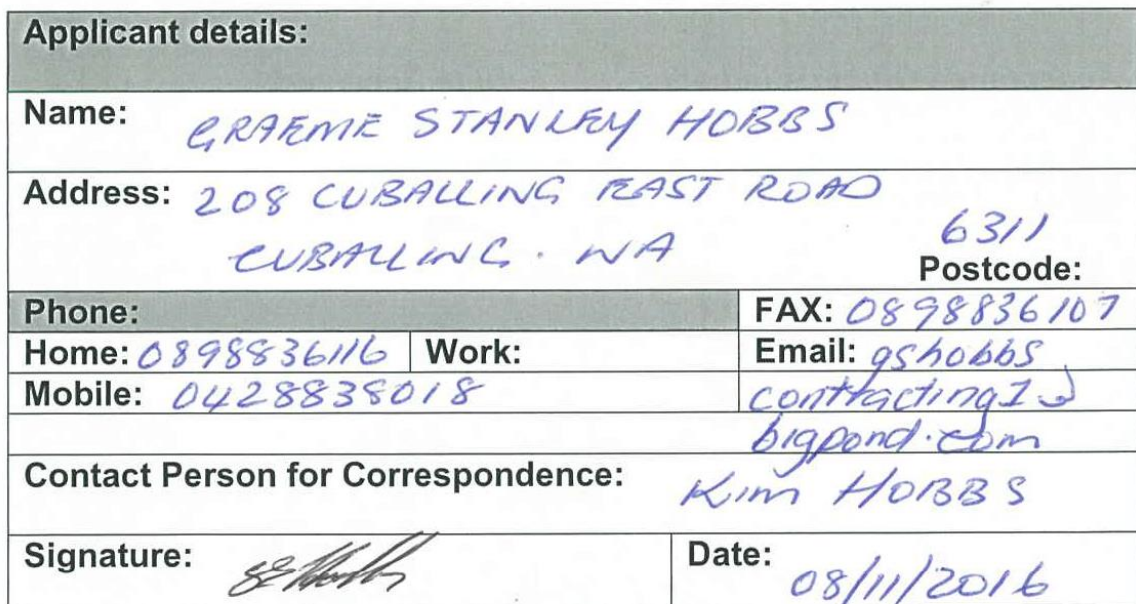 Applicant details:
Name: GRAEME STANLEY HOBBS
Address: 208 CUBALLING EAST ROAD
CUBALLING. WA 6311
Postcode:
Phone: FAX: 0898836107
Home: 0898836116 Work: Email: gshobbs
Mobile: 0428838018 contracting1@
bigpond.com
Contact Person for Correspondence: Kim HOBBS
Signature: Date: 08/11/2016